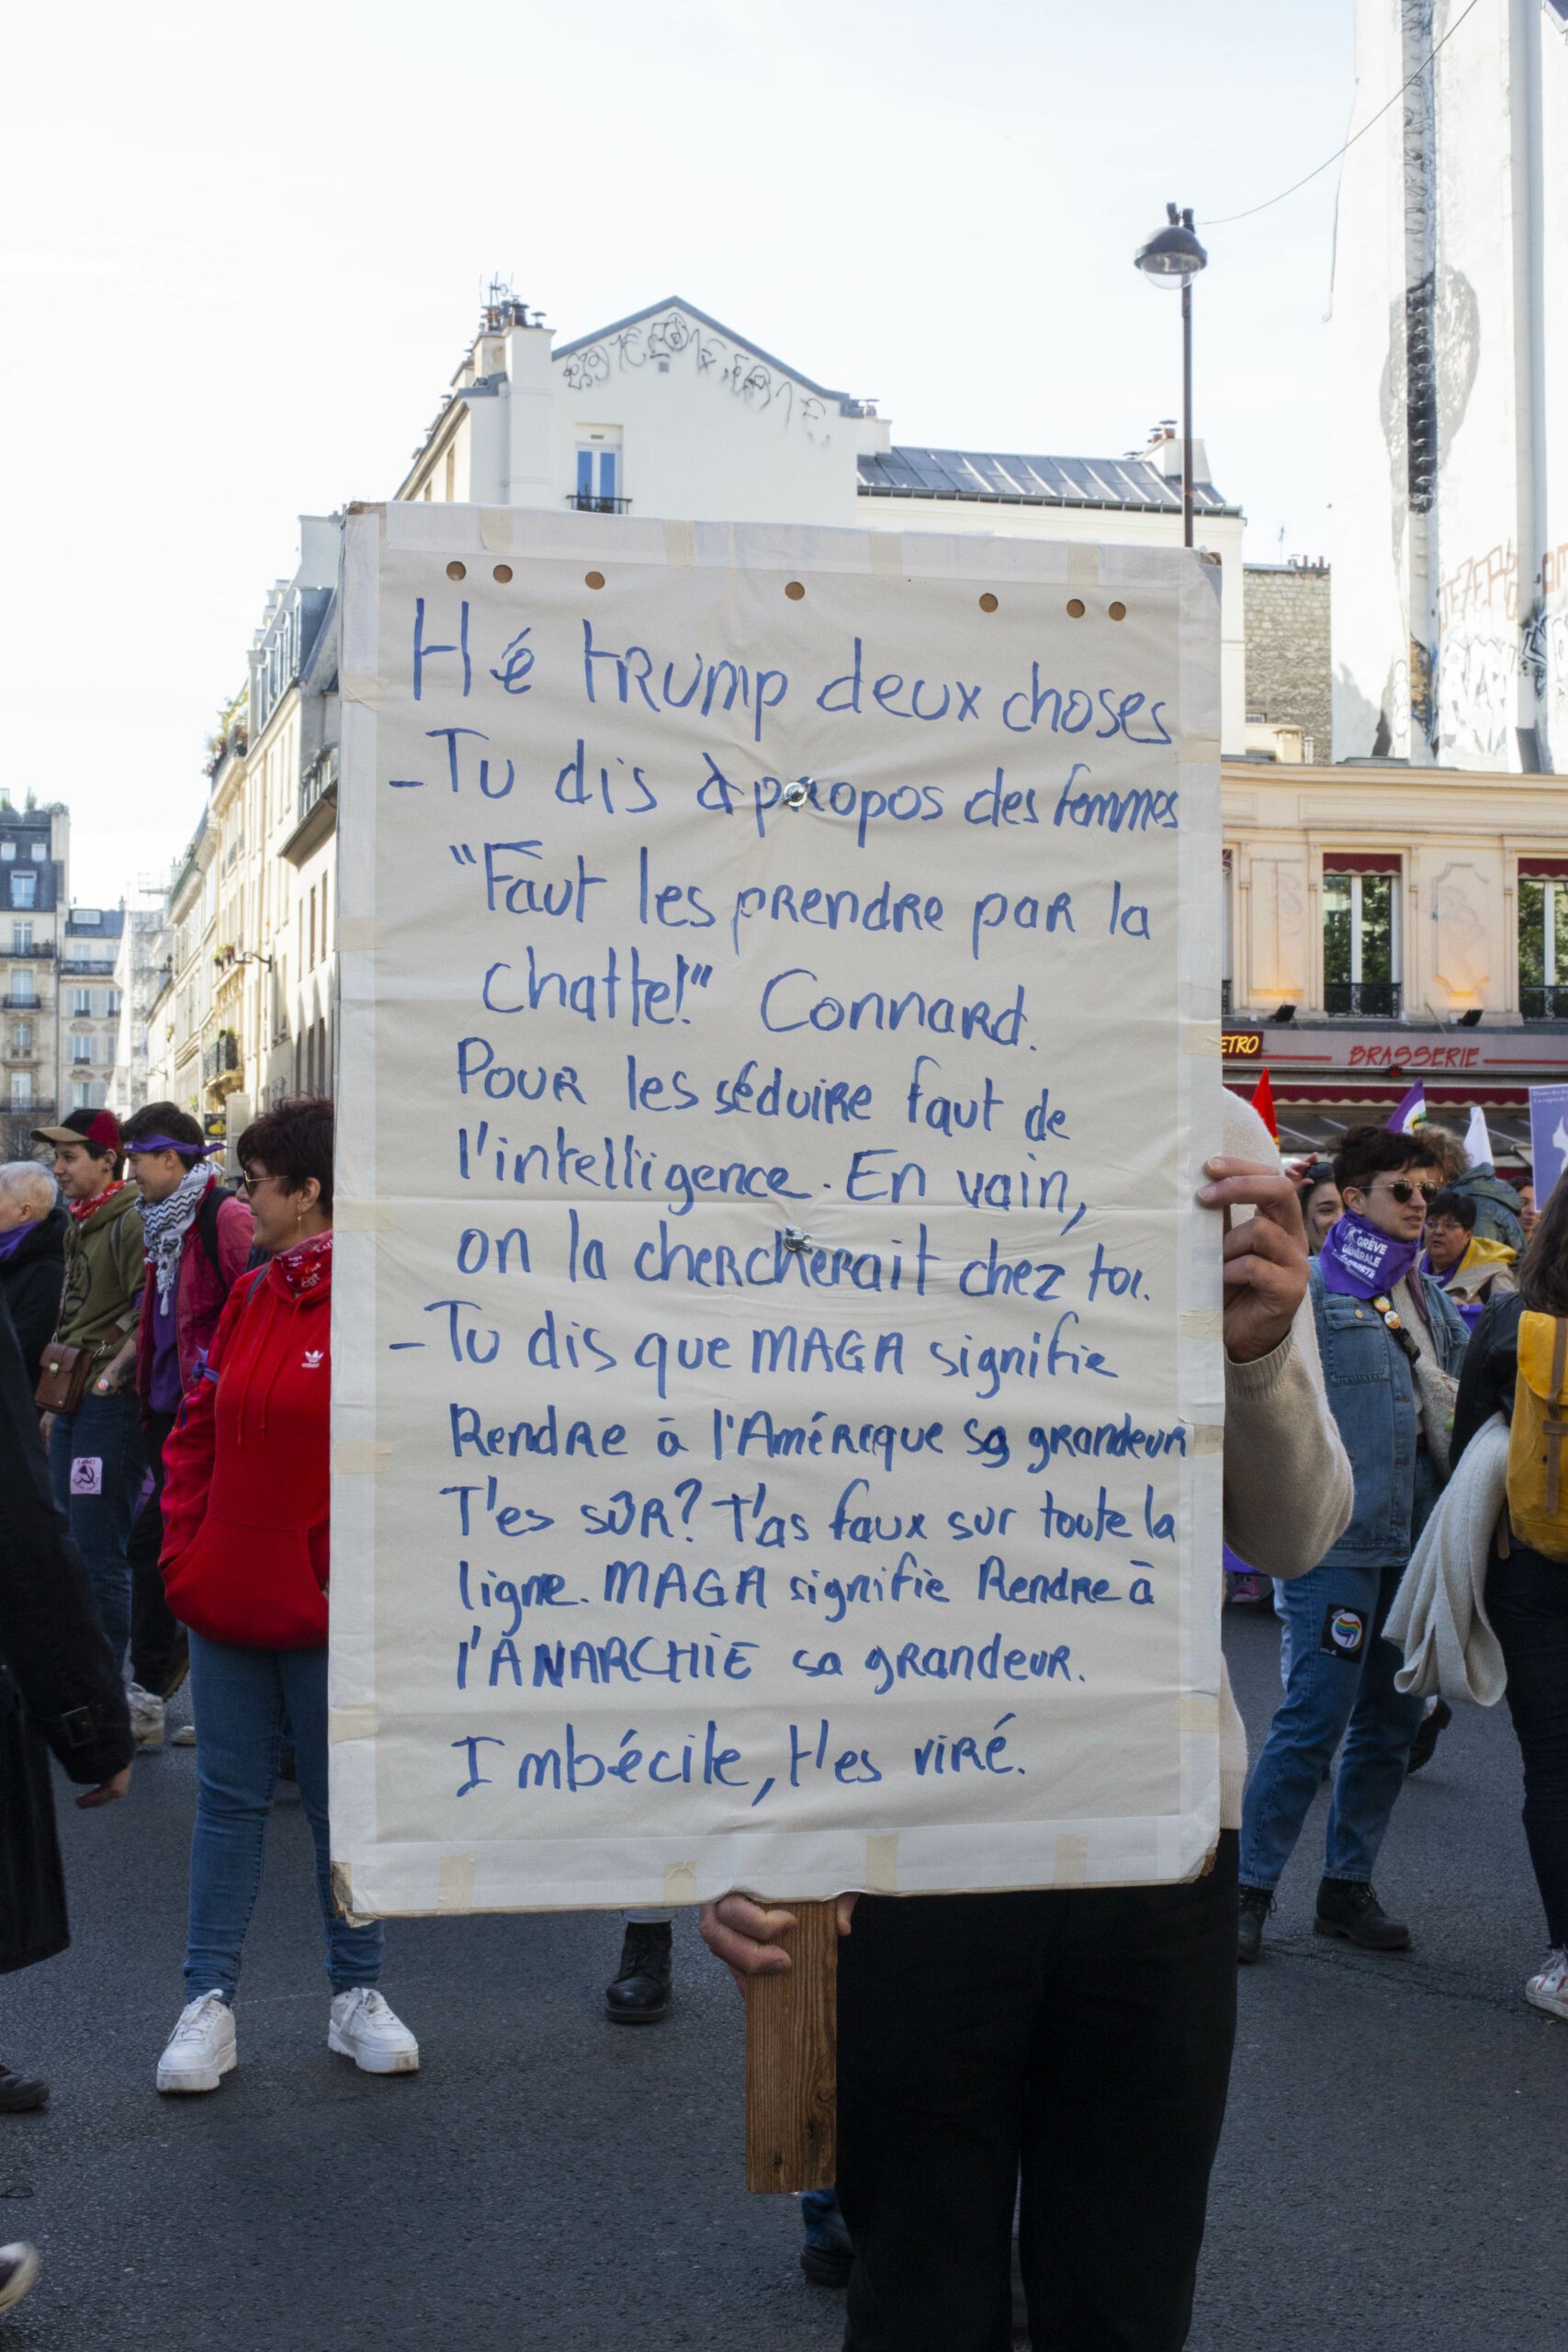 Hé trump deux choses
- Tu dis à propos des femmes
"Faut les prendre par la
chatte!" Connard.
Pour les séduire faut de
l'intelligence. En vain,
on la chercherait chez toi.
- Tu dis que MAGA signifie
Rendre à l'Amérique sa grandeur
T'es sûr? T'as faux sur toute la
ligne. MAGA signifie Rendre à
l'ANARCHIE sa grandeur.
Imbécile, t'es viré.
ETRO
BRASSERIE
GRÈVE
GÉNÉRALE
adidas
cgt